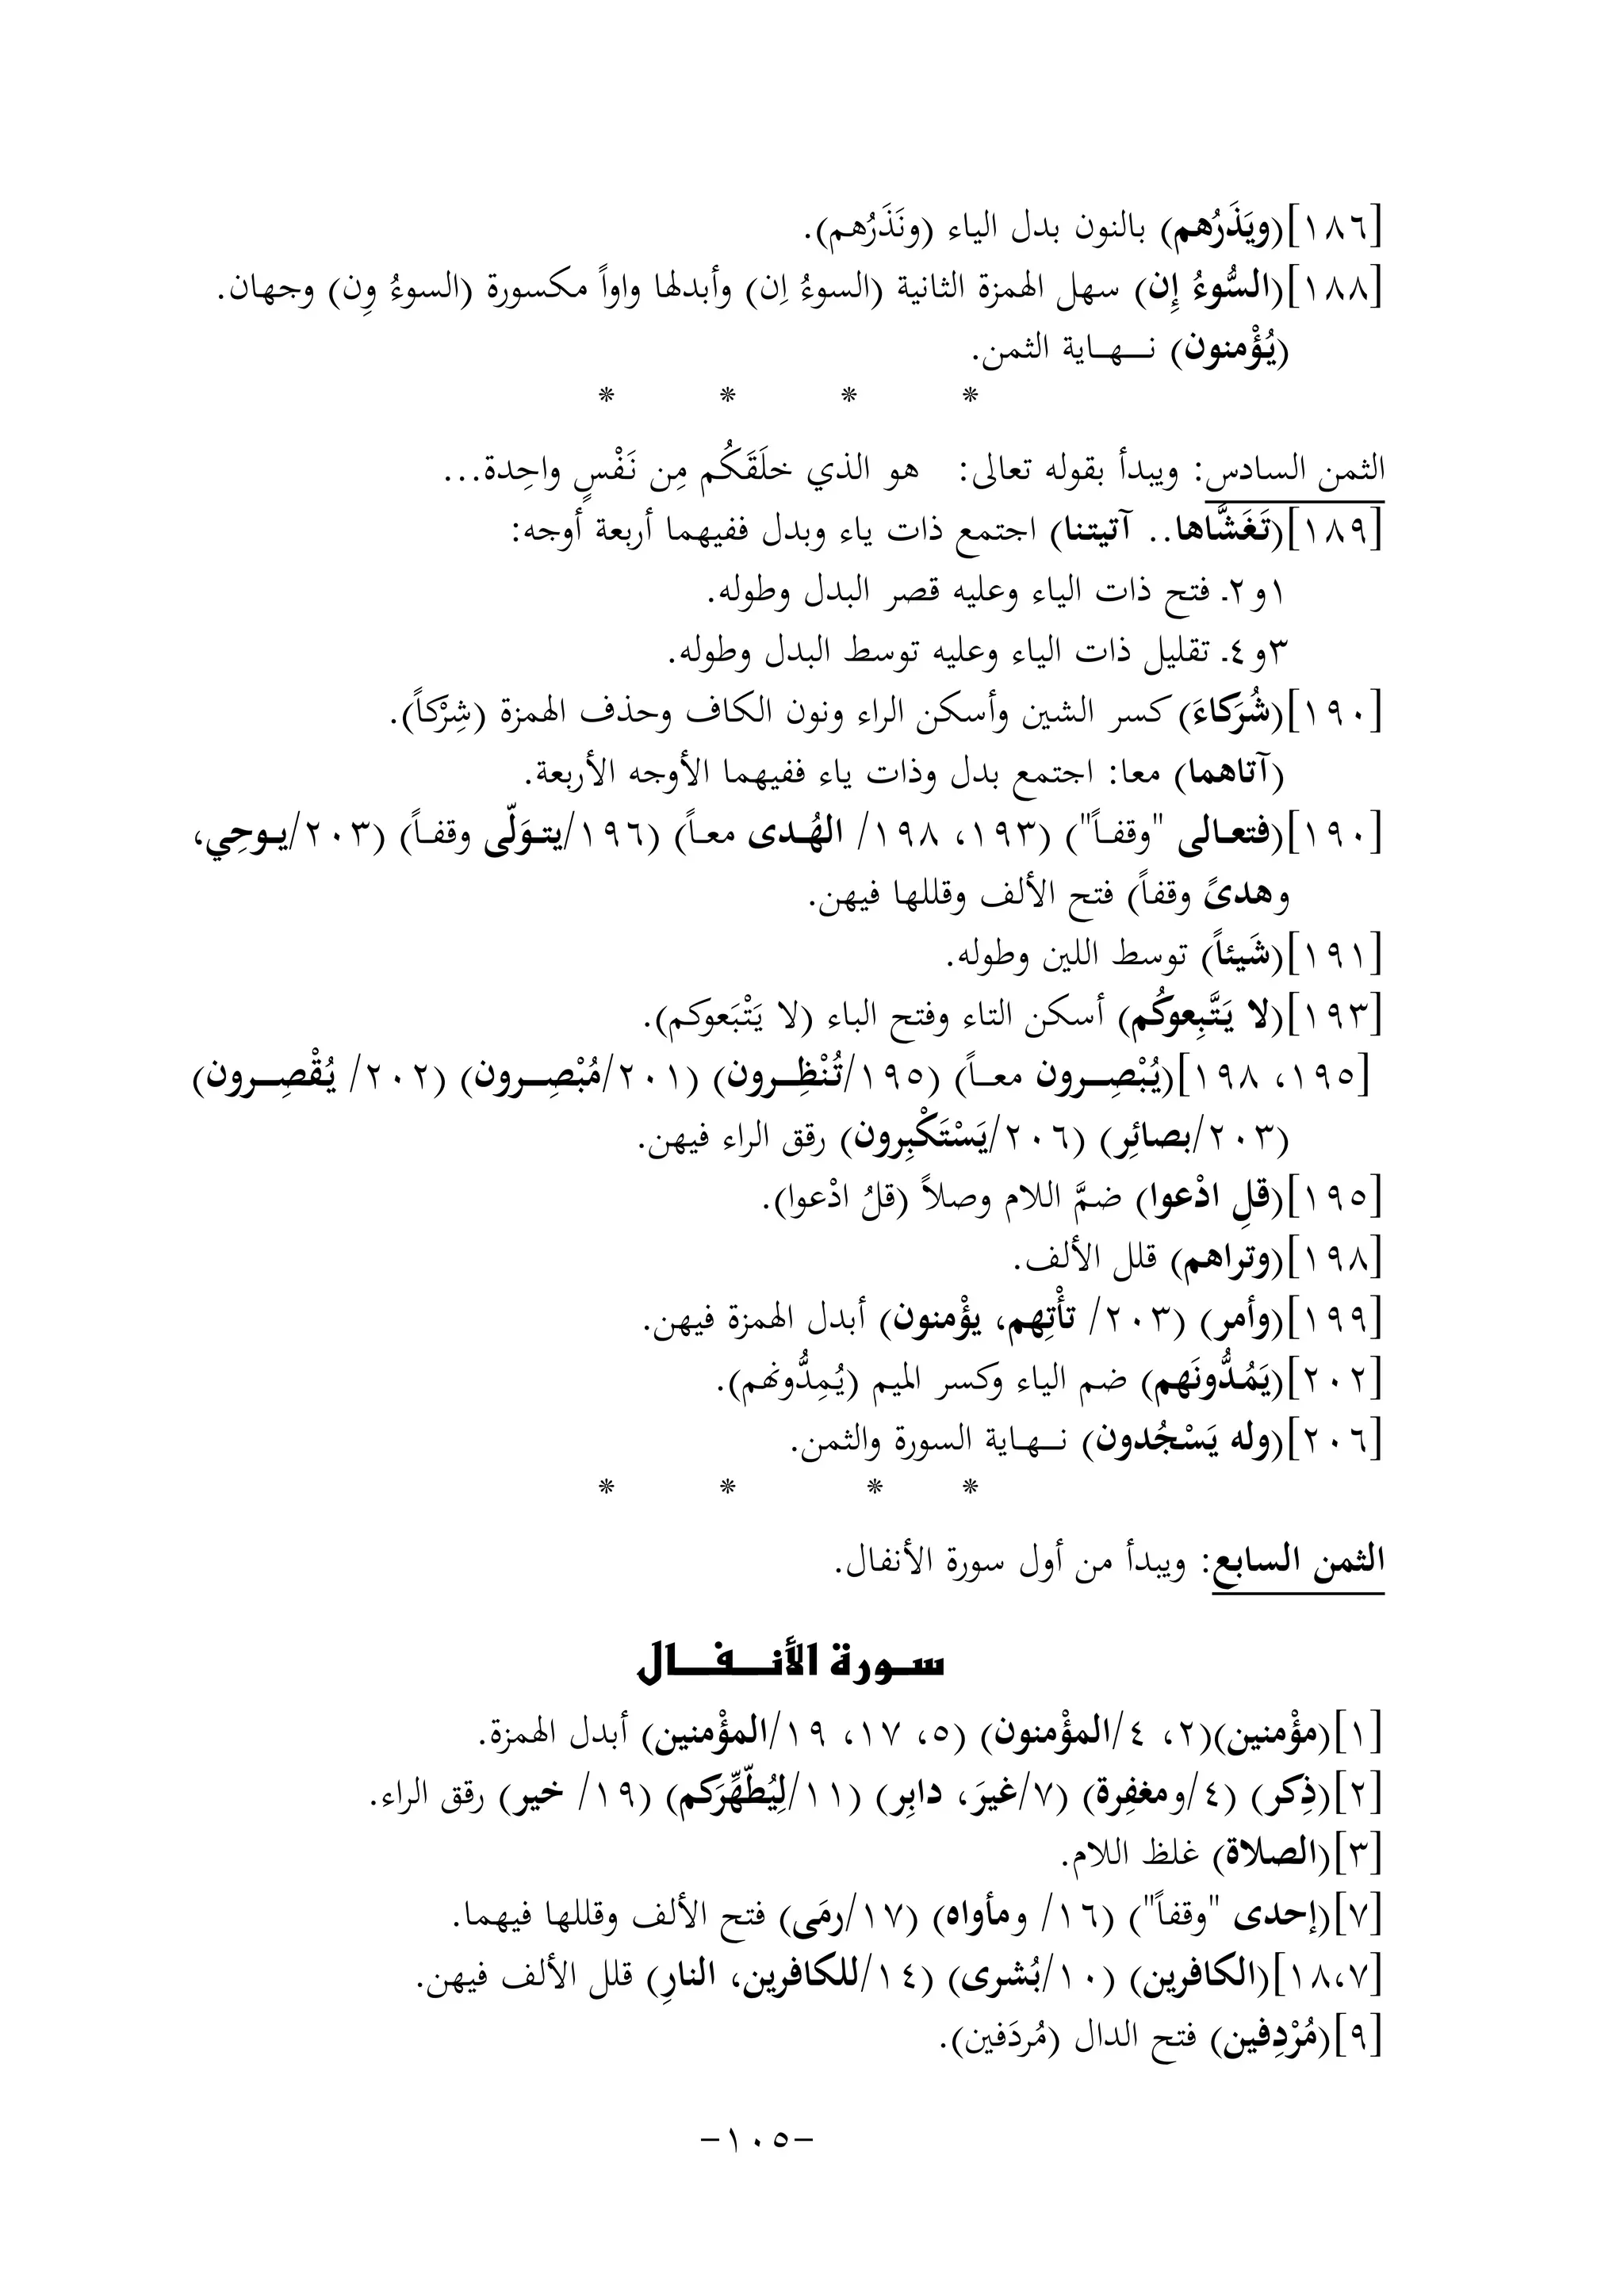 [١٨٦](ويَذَرُهم) بالنون بدل الياء (ونَذَرُهم).
[١٨٨](السُّوءُ إِن) سهل الهمزة الثانية (السوءُ اِن) وأبدلها واواً مكسورة (السوءُ وِن) وجهان.
(يُؤْمنون) نـــهـاية الثمن.
* * * *
الثمن السادس: ويبدأ بقوله تعالى: هو الذي خلَقَكُم مِن نَفْسٍ واحِدة...
[١٨٩](تَغَشَّاها.. آتيتنا) اجتمع ذات ياء وبدل ففيهما أربعة أوجه:
١و٢. فتح ذات الياء وعليه قصر البدل وطوله.
٣و٤. تقليل ذات الياء وعليه توسط البدل وطوله.
[١٩٠](شُرَكاءَ) كسر الشين وأسكن الراء ونون الكاف وحذف الهمزة (شِرْكاً).
(آتاهما) معا: اجتمع بدل وذات ياء ففيهما الأوجه الأربعة.
[١٩٠](فتعـالى "وقفـاً") (١٩٣، ١٩٨/ الهُـدى معـاً) (١٩٦/يتـوَلّى وقفـاً) (٢٠٣/يـوحِي،
وهدىً وقفاً) فتح الألف وقللها فيهن.
[١٩١](شَيئاً) توسط اللين وطوله.
[١٩٣](لا يَتَّبِعوكُم) أسكن التاء وفتح الباء (لا يَتْبَعوكم).
[١٩٥، ١٩٨](يُبْصِــرون معــاً) (١٩٥/تُنْظِــرون) (٢٠١/مُبْصِــرون) (٢٠٢/ يُقْصِــرون)
(٢٠٣/بصائِر) (٢٠٦/يَسْتَكْبِرون) رقق الراء فيهن.
[١٩٥](قلِ ادْعوا) ضمَّ اللام وصلاً (قلُ ادْعوا).
[١٩٨](وتراهم) قلل الألف.
[١٩٩](وأمر) (٢٠٣/ تأْتِهم، يؤْمنون) أبدل الهمزة فيهن.
[٢٠٢](يَمُدُّونَهم) ضم الياء وكسر الميم (يُمِدُّونهم).
[٢٠٦](وله يَسْجُدون) نــهـاية السورة والثمن.
* * * *
الثمن السابع: ويبدأ من أول سورة الأنفال.
سـورة الأنـــفـــال
[١](مؤْمنين)(٢، ٤/المؤْمنون) (٥، ١٧، ١٩/المؤْمنين) أبدل الهمزة.
[٢](ذِكر) (٤/ومغفِرة) (٧/غيرَ، دابِر) (١١/لِيُطّهِّرَكم) (١٩/ خير) رقق الراء.
[٣](الصلاة) غلظ اللام.
[٧](إحدى "وقفاً") (١٦/ ومأواه) (١٧/رمَى) فتح الألف وقللها فيهما.
[١٨،٧](الكافرين) (١٠/بُشرى) (١٤/للكافرين، النارِ) قلل الألف فيهن.
[٩](مُرْدِفين) فتح الدال (مُردَفين).
-١٠٥-